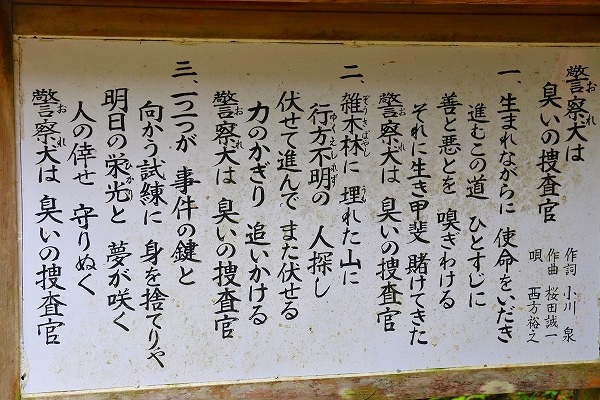 警察犬は
臭いの捜査官
作詞 小川 泉
作曲 桜田誠一
唄 西方裕之
一、生まれながらに 使命をいだき
進むこの道 ひとすじに
善と悪とを 嗅ぎわける
それに生き甲斐 賭けてきた
警察犬は 臭いの捜査官
二、雑木林に 埋れた山に
行方不明の 人探し
伏せて進んで また伏せる
力のかぎり 追いかける
警察犬は 臭いの捜査官
三、一つ一つが 事件の鍵と
向かう試練に 身を捨てりゃ
明日の栄光と 夢が咲く
人の倖せ 守りぬく
警察犬は 臭いの捜査官